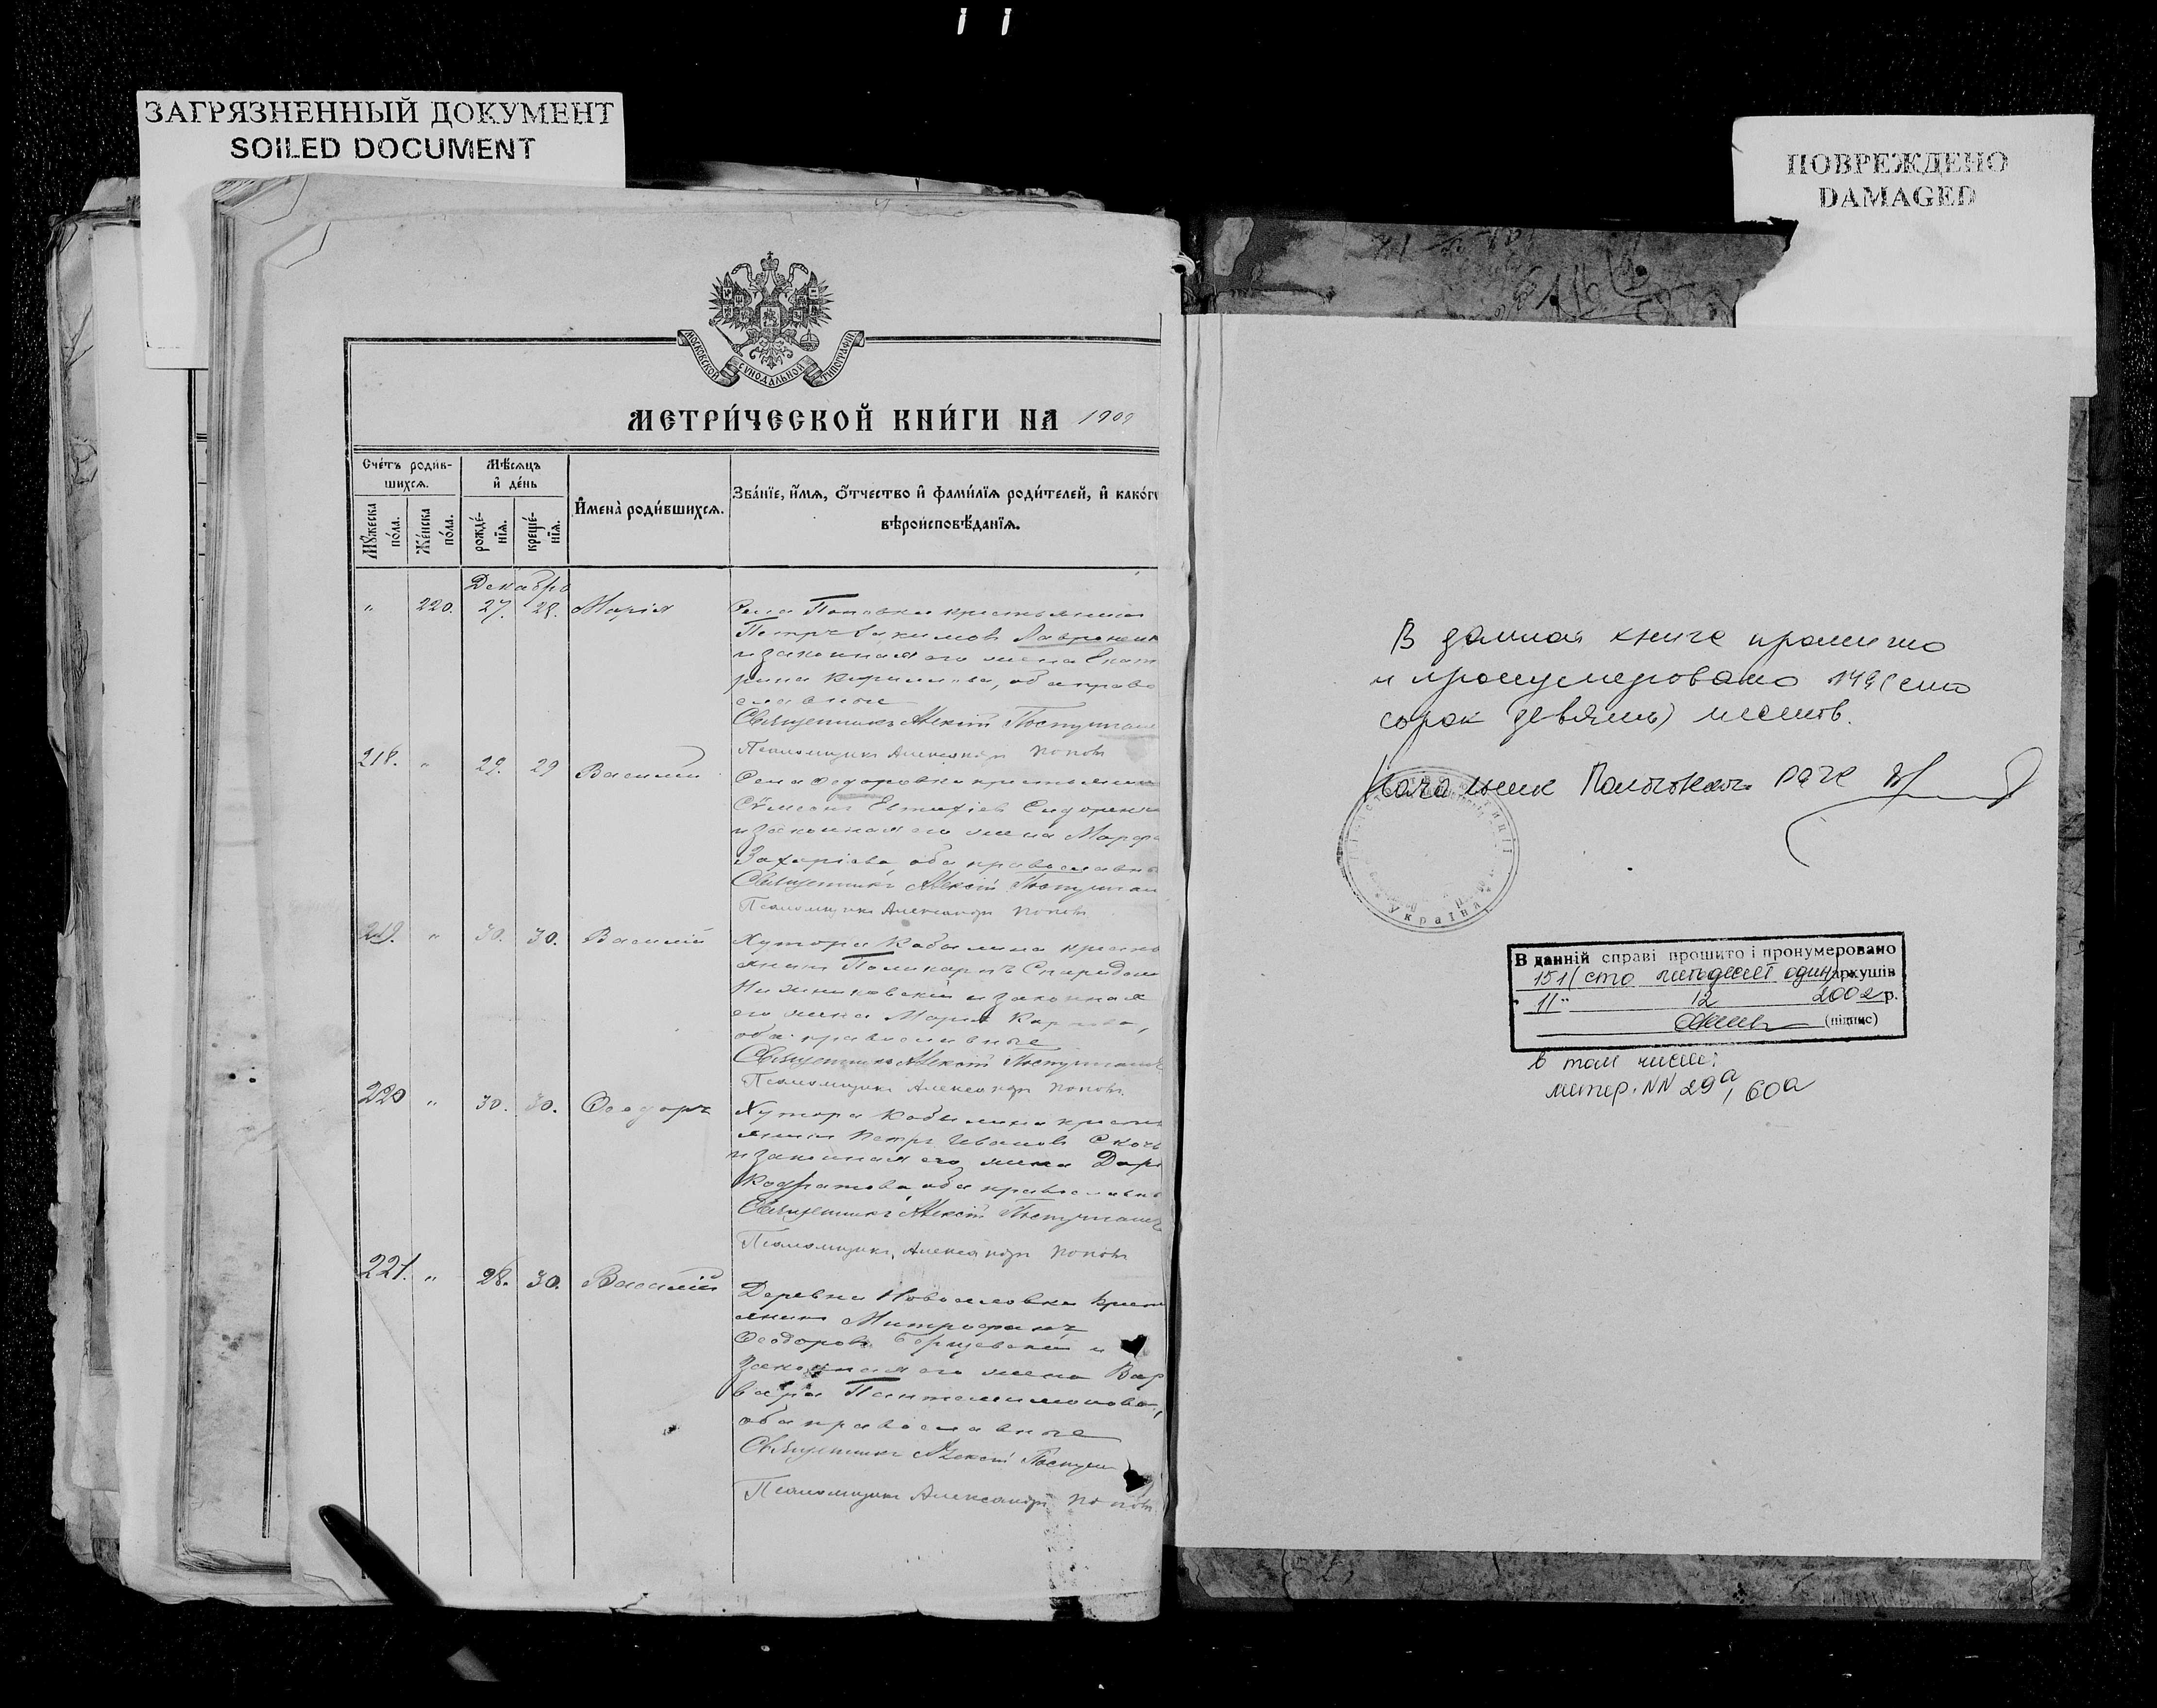 ЗАГРЯЗНЕННЫЙ ДОКУМЕНТ
SOILED DOCUMENT
ПОВРЕЖДЕНО
DAMAGED
МОСКОВСКОЙ СѴНОДАЛЬНОЙ ТИПОГРАФІИ
МЕТРИ́ЧЕСКОЙ КНИ́ГИ НА 1909
Сче́тъ роди́в-
шихсѧ.
Мѣ́сѧцъ
и҆ де́нь
И҆мена̀ роди́вшихсѧ.
Зва́нїе, и҆́мѧ, ѻ҆́тчество и҆ фами́лїѧ роди́телей, и҆ како́гѡ
вѣроисповѣ́данїѧ.
Мꙋ́жеска
по́ла.
Же́нска
по́ла.
рожде́-
нїѧ.
креще́-
нїѧ.
Декабрь
" 220. 27. 28. Марія
Села Поповки крестьянинъ
Петръ Іакимовъ Лавроненк
и законная его жена Екат
рина Кириллова, оба право
славные
Священникъ Алексій
Псаломщикъ Александръ Поповъ
218. " 29. 29 Василій
Села Федоровки крестьянинъ
Сѵмеонъ Евтихіев Сидоренк
и законная его жена Марфа
Захаріева оба православн
Священникъ Алексій
Псаломщикъ Александръ Поповъ
219. " 30. 30. Василій
Хутора Кобылина крест
янинъ Поликарпъ Спиридон
и законная
его жена Марія Карпова,
оба православные
Священникъ Алексій
Псаломщикъ Александръ Поповъ.
220 " 30. 30. Ѳеодоръ
Хутора Кобылина крест
янинъ Петръ Ивановъ
и законная его жена Дар
Кодратова оба православн
Священникъ Алексій
Псаломщикъ Александръ Поповъ
221. " 28. 30. Василій
Деревни крест
янинъ Митрофанъ
Ѳеодоровъ Борщевскій и
законная его жена Вар
вара Пантелимонова,
оба православные
Священникъ Алексій
Псаломщикъ Александръ Поповъ
В данная книге прошито
и пронумеровано 149 (сто
сорок девять) листов.
Начальник РАГС
Україна
В данній справі прошито і пронумеровано
151 (сто пятдесят один) аркушів
" 11 " 12 2002 р.
(підпис)
в том числе:
литер. NN 29а, 60а